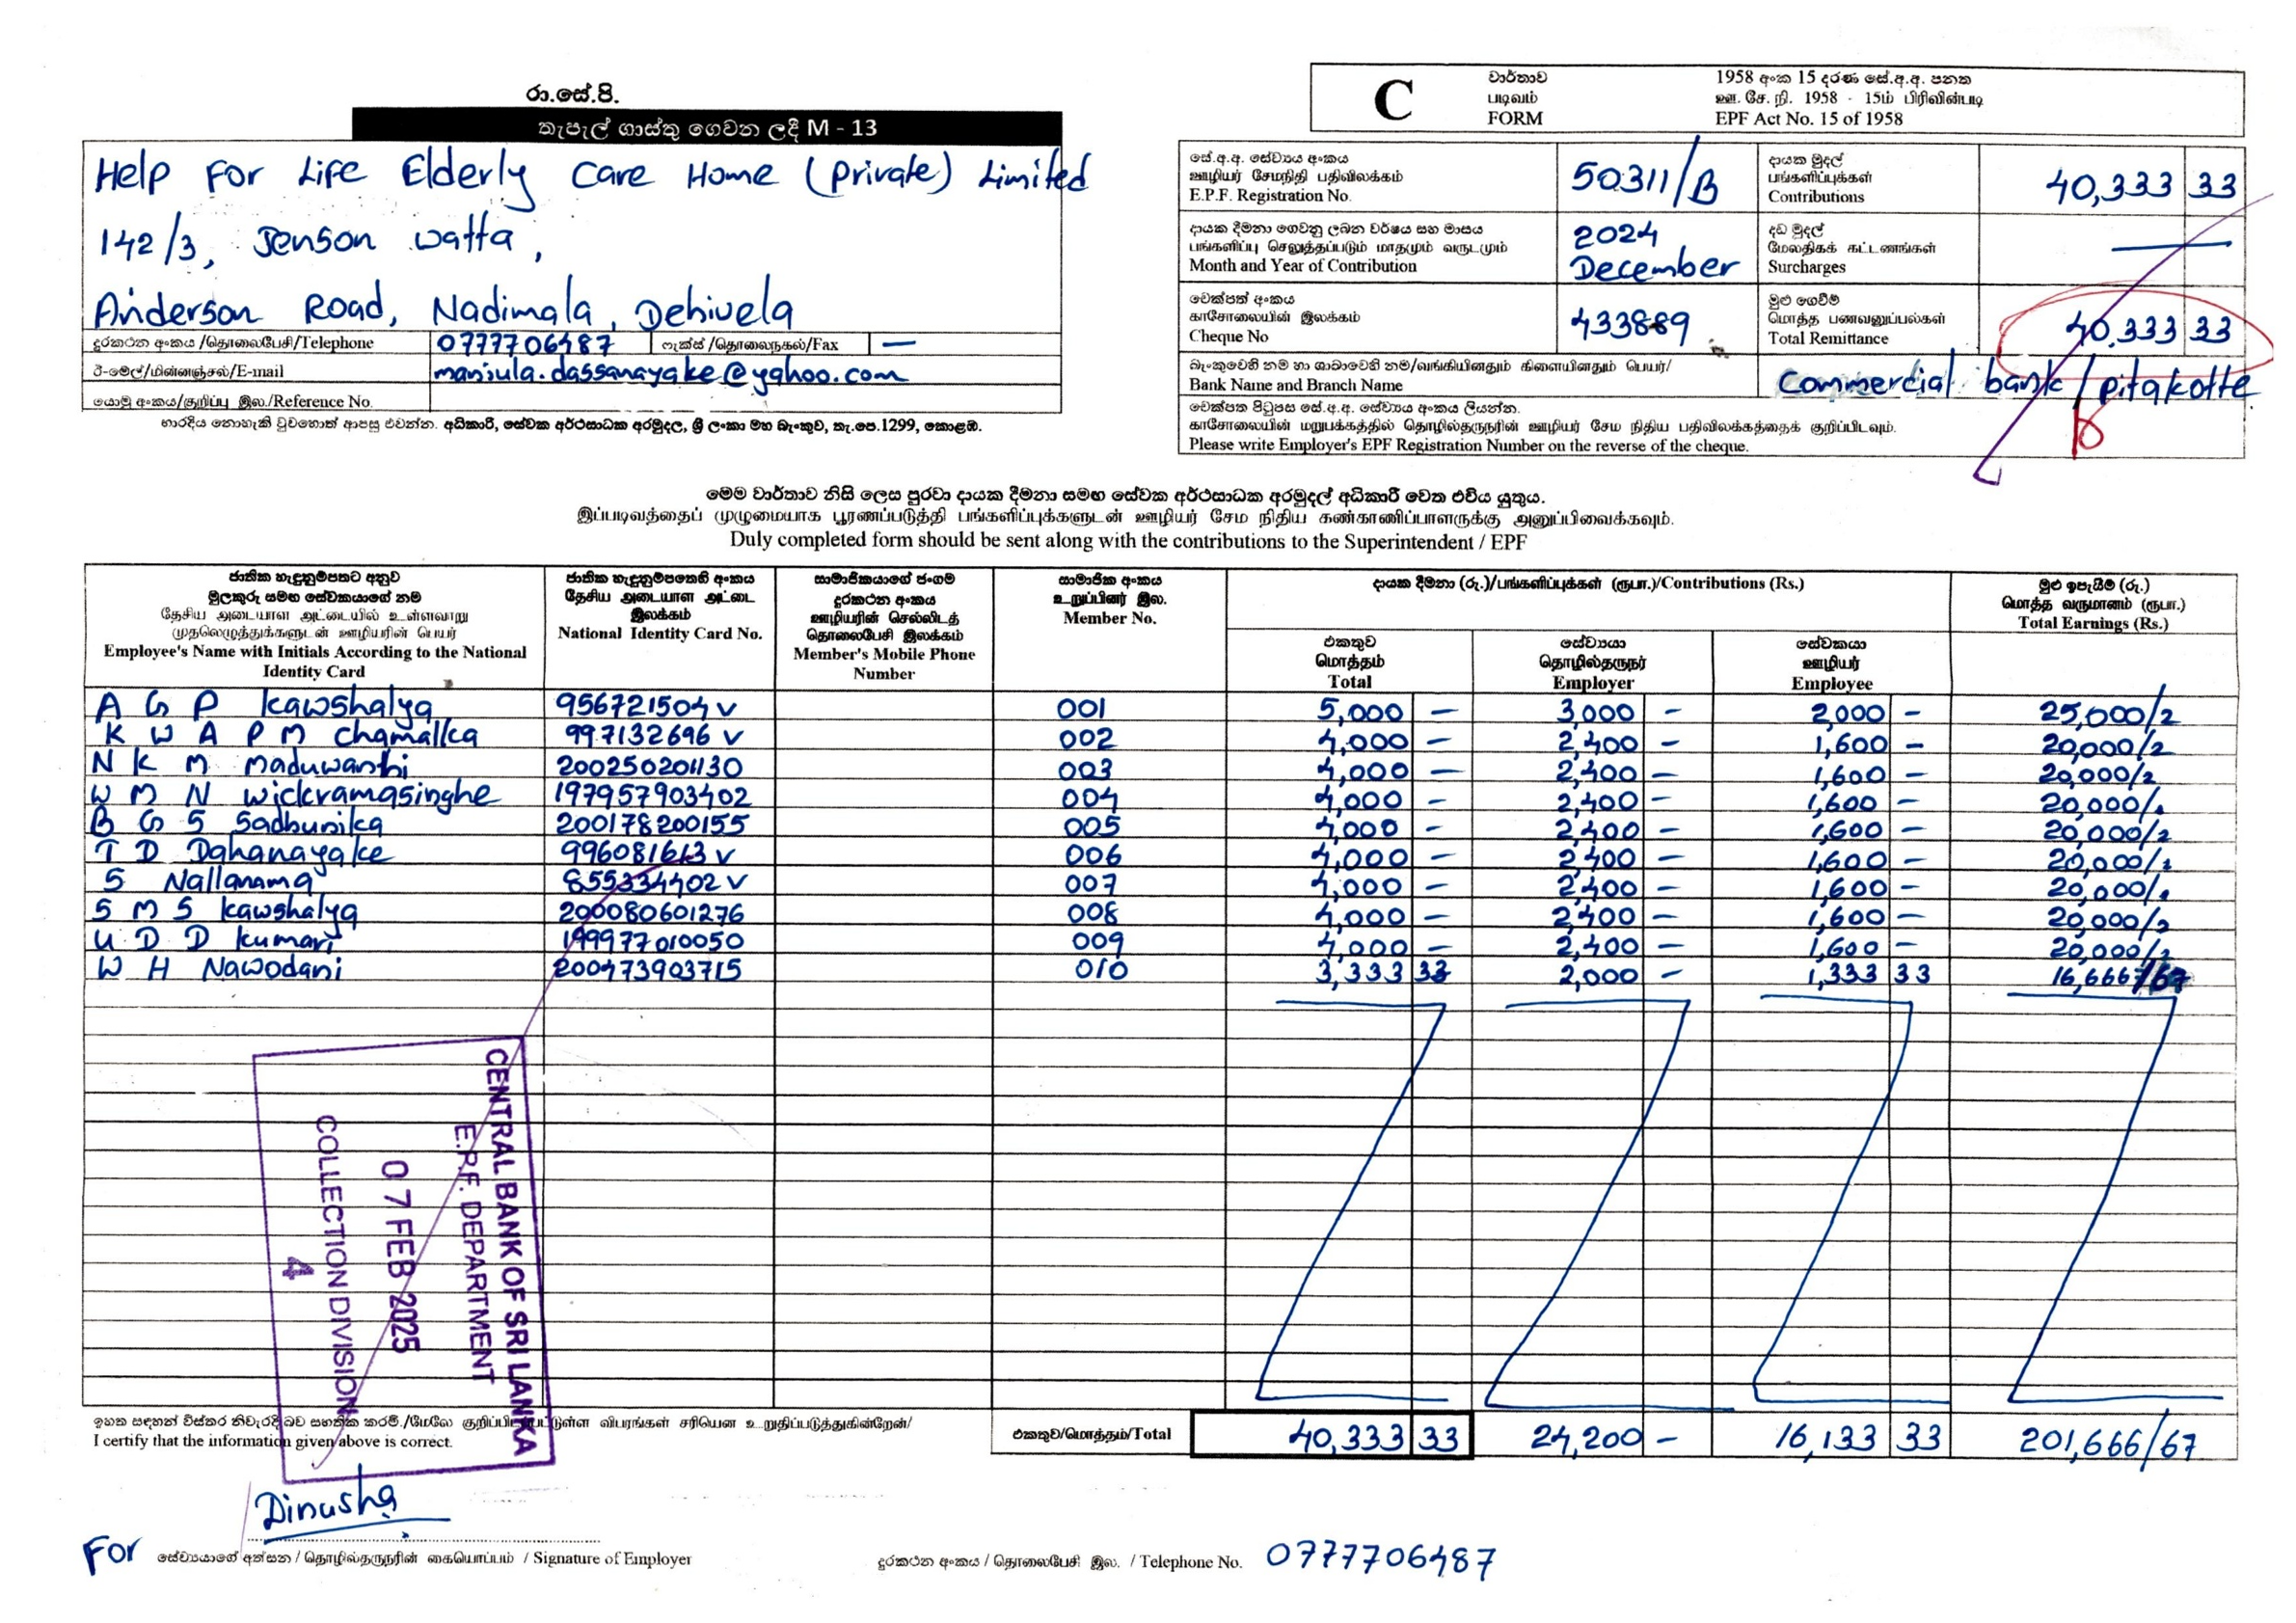 රා.සේ.පි.
තැපැල් ගාස්තු ගෙවන ලදී M - 13
Help For Life Elderly Care Home (Private) Limited
142/3, Jenson watta,
Anderson Road, Nadimala, Dehiwela
දුරකථන අංකය /தொலைபேசி/Telephone 0777706487 ෆැක්ස් /தொலைநகல்/Fax —
ඊ-මේල්/மின்னஞ்சல்/E-mail manjula.dassanayake@yahoo.com
යොමු අංකය/குறிப்பு இல./Reference No.
භාරදිය නොහැකි වුවහොත් ආපසු එවන්න. අධිකාරී, සේවක අර්ථසාධක අරමුදල, ශ්‍රී ලංකා මහ බැංකුව, තැ.පෙ.1299, කොළඹ.
C
වාර්තාව
படிவம்
FORM
1958 අංක 15 දරණ සේ.අ.අ. පනත
ஊ. சே. நி. 1958 - 15ம் பிரிவின்படி
EPF Act No. 15 of 1958
සේ.අ.අ. සේව්‍යය අංකය
ஊழியர் சேமநிதி பதிவிலக்கம்
E.P.F. Registration No.
50311/B
දායක මුදල්
பங்களிப்புக்கள்
Contributions
40,333 33
දායක දීමනා ගෙවනු ලබන වර්ෂය සහ මාසය
பங்களிப்பு செலுத்தப்படும் மாதமும் வருடமும்
Month and Year of Contribution
2024
December
දඩ මුදල්
மேலதிகக் கட்டணங்கள்
Surcharges
—
චෙක්පත් අංකය
காசோலையின் இலக்கம்
Cheque No
433889
මුළු ගෙවීම්
மொத்த பணவனுப்பல்கள்
Total Remittance
40,333 33
බැංකුවෙහි නම හා ශාඛාවෙහි නම/வங்கியினதும் கிளையினதும் பெயர்/
Bank Name and Branch Name
Commercial bank / pitakotte
චෙක්පත පිටුපස සේ.අ.අ. සේව්‍යය අංකය ලියන්න.
காசோலையின் மறுபக்கத்தில் தொழில்தருநரின் ஊழியர் சேம நிதிய பதிவிலக்கத்தைக் குறிப்பிடவும்.
Please write Employer's EPF Registration Number on the reverse of the cheque.
මෙම වාර්තාව නිසි ලෙස පුරවා දායක දීමනා සමඟ සේවක අර්ථසාධක අරමුදල් අධිකාරී වෙත එවිය යුතුය.
இப்படிவத்தைப் முழுமையாக பூரணப்படுத்தி பங்களிப்புக்களுடன் ஊழியர் சேம நிதிய கண்காணிப்பாளருக்கு அனுப்பிவைக்கவும்.
Duly completed form should be sent along with the contributions to the Superintendent / EPF
ජාතික හැඳුනුම්පතට අනුව
මුලකුරු සමඟ සේවකයාගේ නම
தேசிய அடையாள அட்டையில் உள்ளவாறு
முதலெழுத்துக்களுடன் ஊழியரின் பெயர்
Employee's Name with Initials According to the National
Identity Card
ජාතික හැඳුනුම්පතෙහි අංකය
தேசிய அடையாள அட்டை
இலக்கம்
National Identity Card No.
සාමාජිකයාගේ ජංගම
දුරකථන අංකය
ஊழியரின் செல்லிடத்
தொலைபேசி இலக்கம்
Member's Mobile Phone
Number
සාමාජික අංකය
உறுப்பினர் இல.
Member No.
දායක දීමනා (රු.)/பங்களிப்புக்கள் (ரூபா.)/Contributions (Rs.)
එකතුව
மொத்தம்
Total
සේව්‍යයා
தொழில்தருநர்
Employer
සේවකයා
ஊழியர்
Employee
මුළු ඉපැයීම් (රු.)
மொத்த வருமானம் (ரூபா.)
Total Earnings (Rs.)
A G P Kawshalya 956721504 v 001 5,000 — 3,000 - 2,000 - 25,000/2
K W A P M Chamalka 997132696 v 002 4,000 — 2,400 - 1,600 - 20,000/2
N K M Maduwanthi 200250201130 003 4,000 — 2,400 - 1,600 - 20,000/2
W M N Wickramasinghe 197957903402 004 4,000 - 2,400 - 1,600 - 20,000/
B G S Sadhunika 200178200155 005 4,000 - 2,400 - 1,600 - 20,000/2
T D Dahanayake 996081613 v 006 4,000 - 2,400 - 1,600 - 20,000/2
S Nallanama 855334402 v 007 4,000 - 2,400 - 1,600 - 20,000/
S M S Kawshalya 200080601276 008 4,000 — 2,400 - 1,600 - 20,000/2
U D D Kumari 199977010050 009 4,000 - 2,400 - 1,600 - 20,000/2
W H Nawodani 200473903715 010 3,333 33 2,000 - 1,333 33 16,666/67
CENTRAL BANK OF SRI LANKA
E.P.F. DEPARTMENT
07 FEB 2025
COLLECTION DIVISION
4
ඉහත සඳහන් විස්තර නිවැරදි බව සහතික කරමි./மேலே விபரங்கள் சரியென உறுதிப்படுத்துகின்றேன்/
I certify that the information given above is correct.
එකතුව/மொத்தம்/Total 40,333 33 24,200 - 16,133 33 201,666/67
Dinusha
For සේව්‍යයාගේ අත්සන / தொழில்தருநரின் கையொப்பம் / Signature of Employer
දුරකථන අංකය / தொலைபேசி இல. / Telephone No. 0777706487